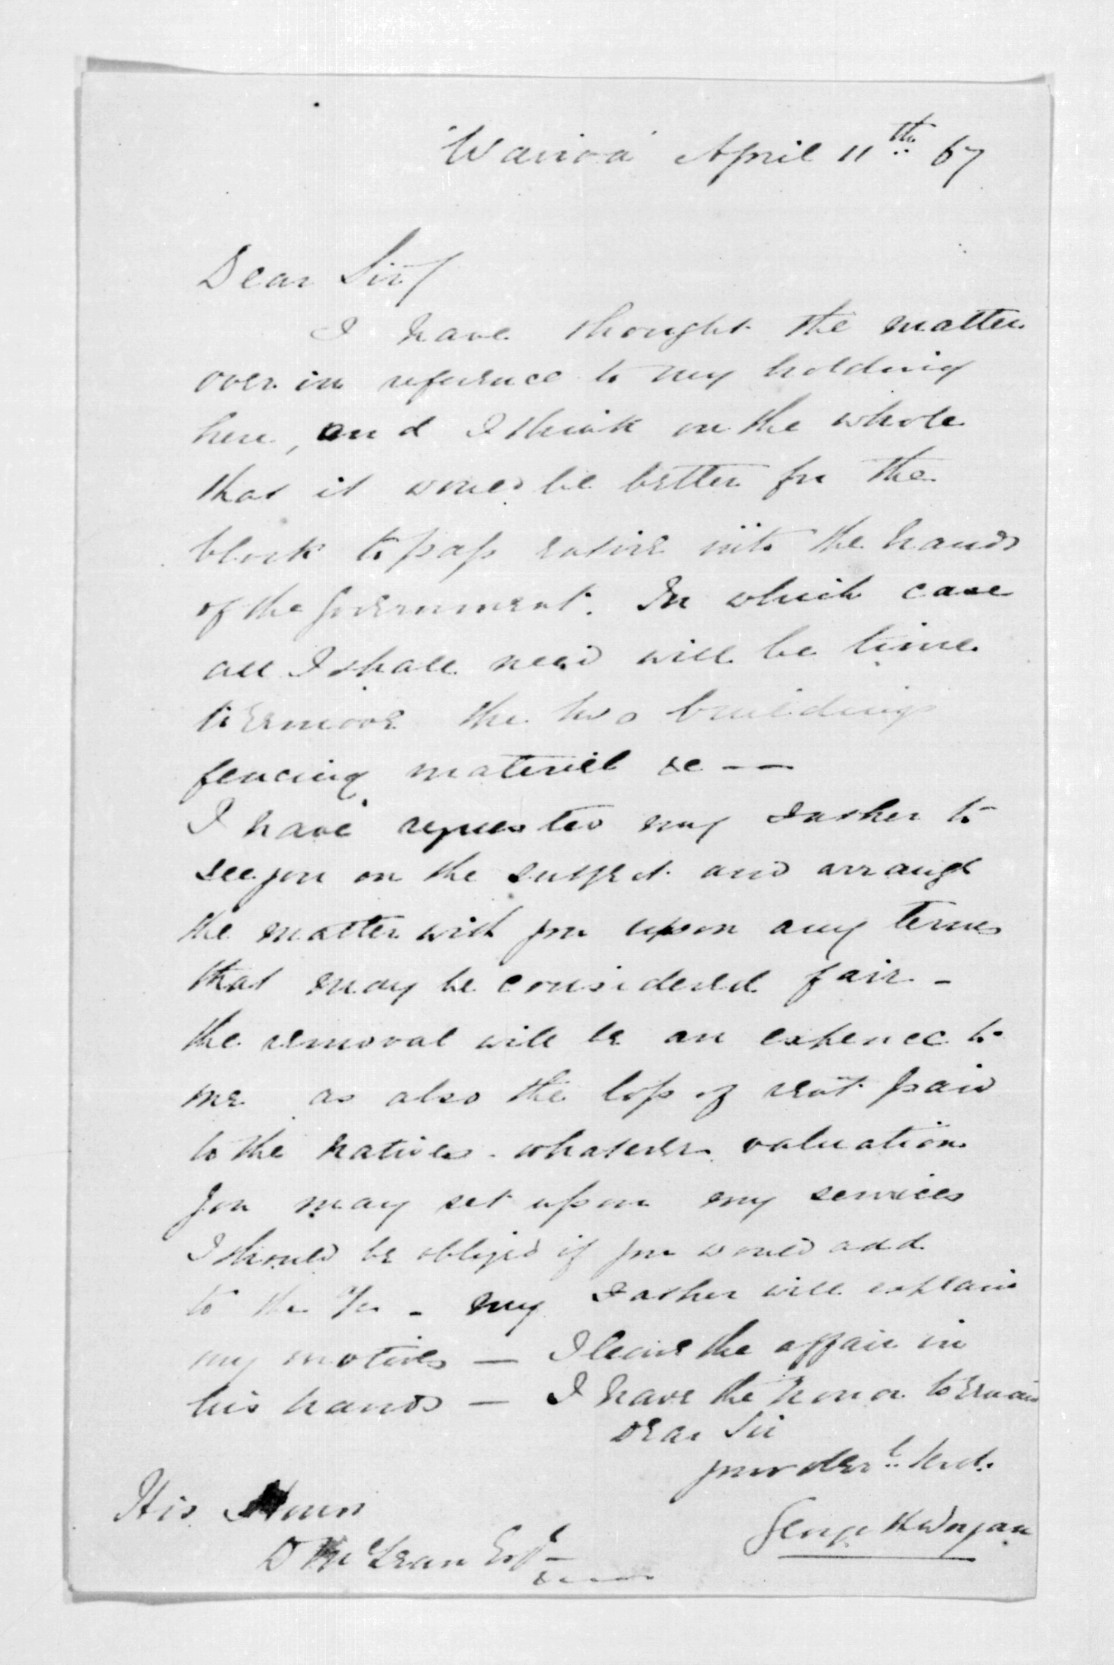 Wairoa April 11th 67
Dear Sir/
I have thought the matter
over in reference to my holding
here, and I think on the whole
that it would be better for the
block to pass entire into the hands
of the Government. In which case
all I shall need will be time
to remove the two buildings
fencing material &c — —
I have requested my Father to
see you on the subject and arrange
the matter with you upon any terms
that may be considered fair -
the removal will be an expence to
me as also the loss of rent paid
to the natives. whatever valuation
you may set upon my services
I should be obliged if you would add
to the - my Father will explain
my motives — I leave the affair in
his hands — I have the honor to remain
Dear Sir
your obert. Servt.
George H Worgan
His Honor
D McLean Esqr